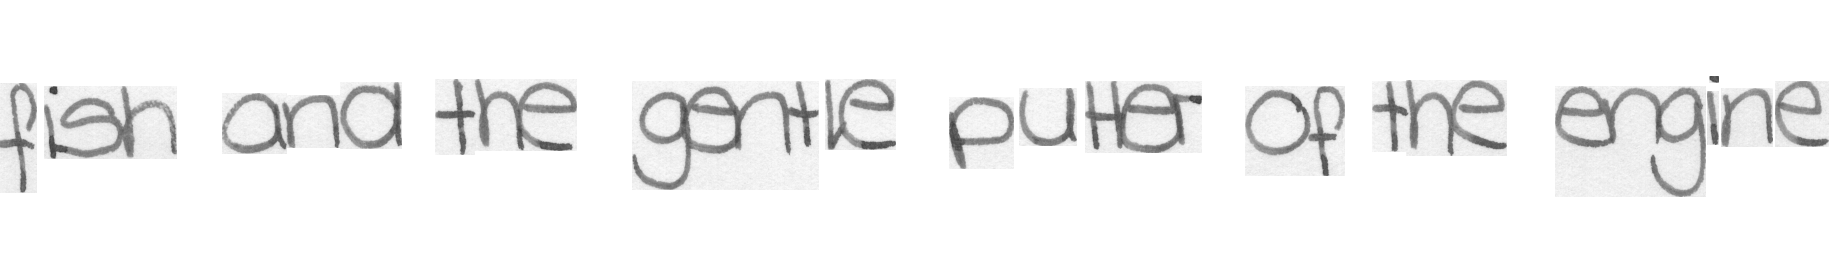 fish and the gentle putter of the engine